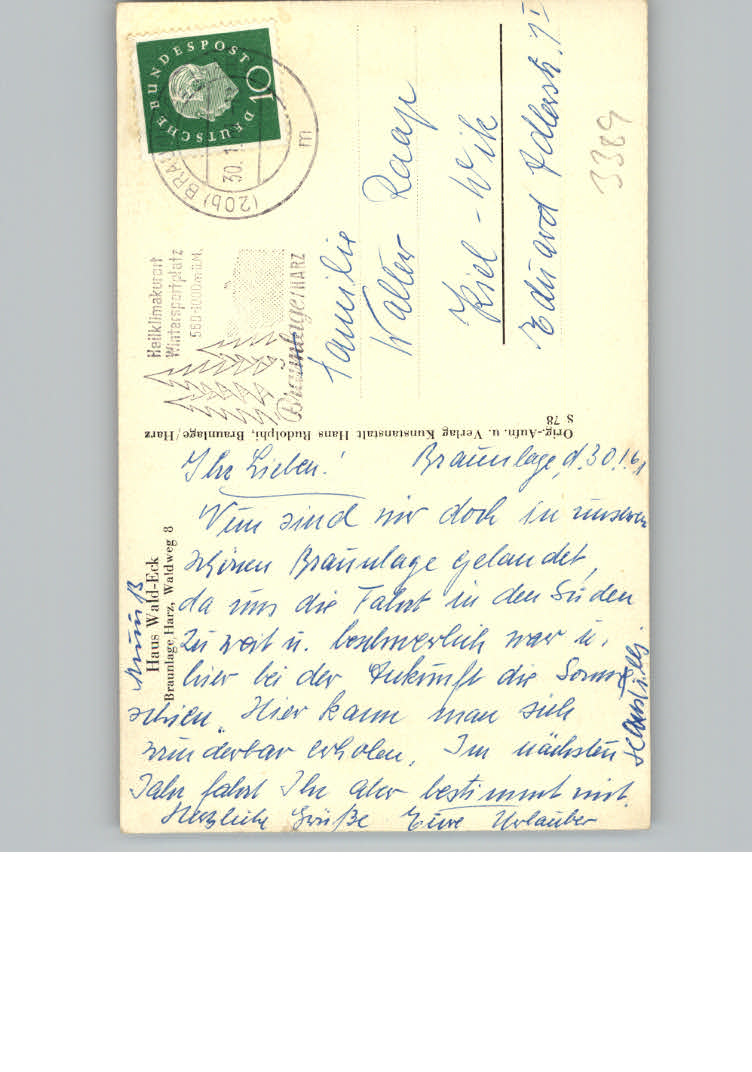 DEUTSCHE BUNDESPOST
10
(20b) BRAU
30. 1.
m
Heilklimakurort
Wintersportplatz
560-1000 m ü.M.
Braunlage/HARZ
Familie
Walter Raap
Kiel-Wik
Eduard Adlerstr.
3389
Orig.-Aufn. u. Verlag Kunstanstalt Hans Rudolphi, Braunlage/Harz
S 78
Haus Wald-Eck
Braunlage/Harz, Waldweg 8
Ihr Lieben! Braunlage, d. 30.1.61
Nun sind wir doch in unserem
schönen Braunlage gelandet,
da uns die Fahrt in den Süden
zu weit u. beschwerlich war u.
hier bei der Ankunft die Sonne
schien. Hier kann man sich
wunderbar erholen. Im nächsten
Jahr fahrt Ihr aber bestimmt mit.
Herzliche Grüße Eure Urlauber